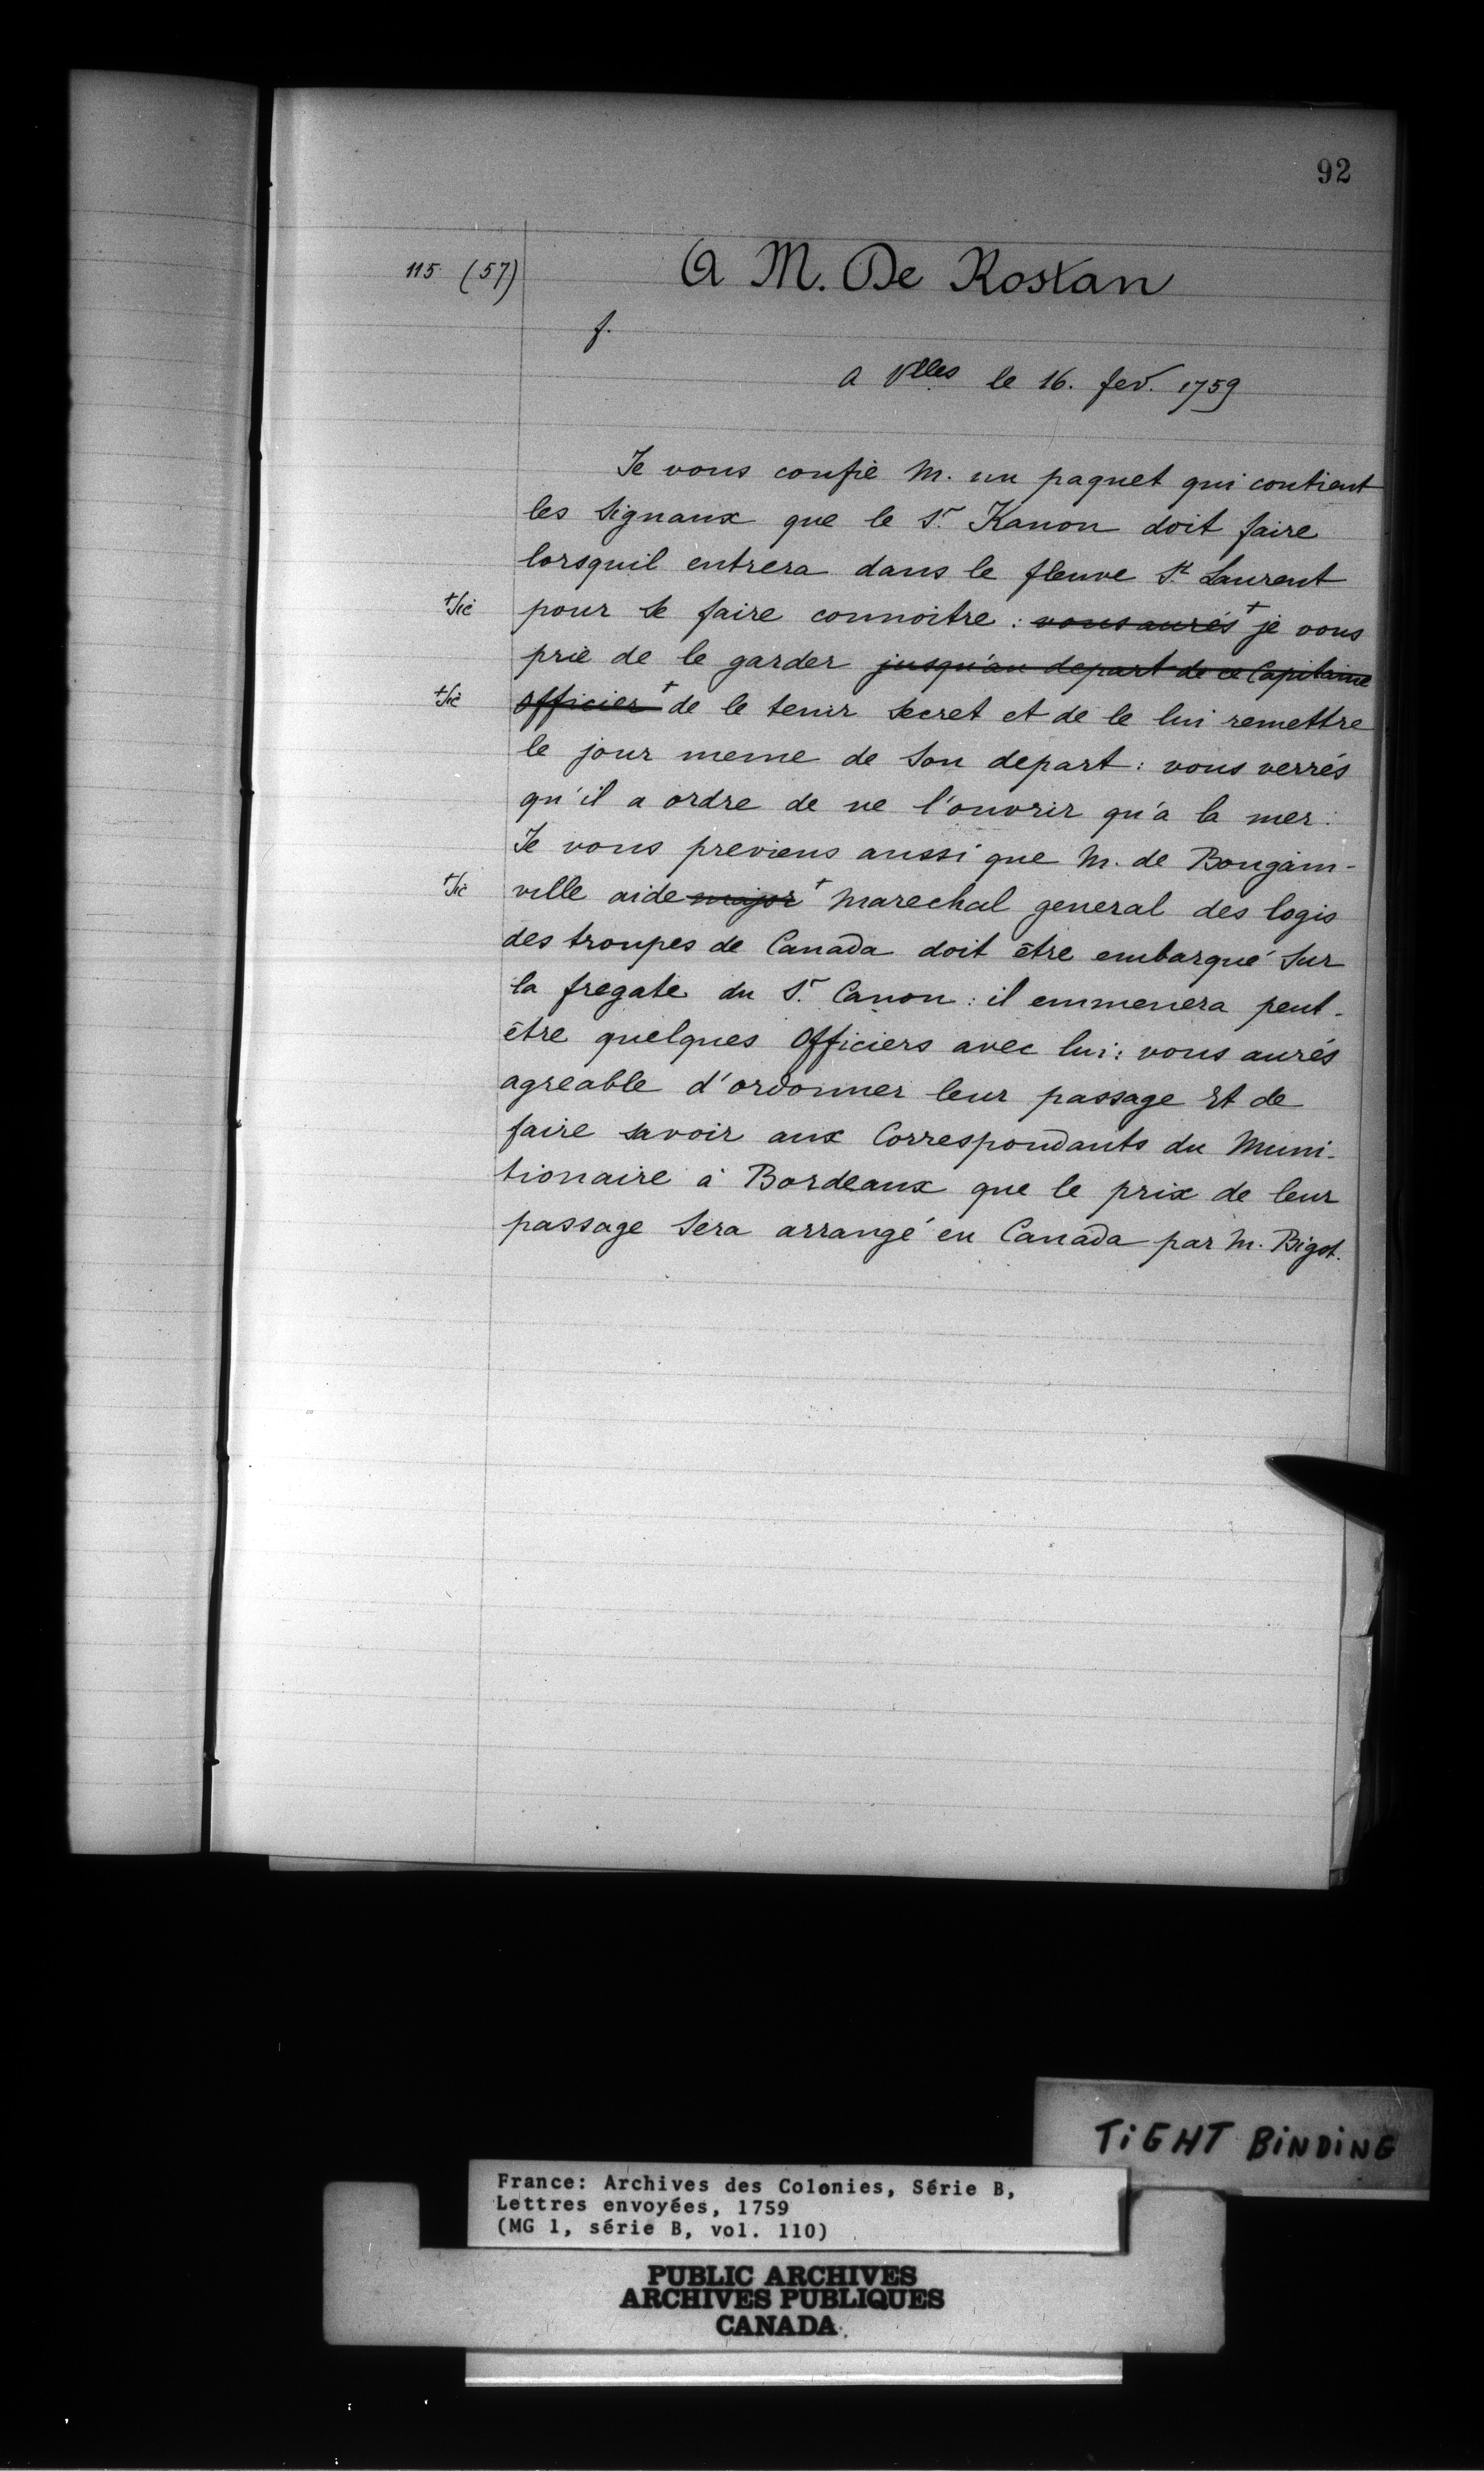 92
115 (57)
A M. De Rostan
f.
A Vlles le 16. fev. 1759
Je vous confie M. un paquet qui contient
les Signaux que le Sr. Kanon doit faire
lorsquil entrera dans le fleuve St Laurent
+Sic pour se faire connoitre : vous aurés + je vous
prie de le garder jusqu'au depart de ce Capitaine
+Sic officier + de le tenir secret et de le lui remettre
le jour meme de Son depart : vous verrés
qu'il a ordre de ne l'ouvrir qu'a la mer :
Je vous previens aussi que M. de Bougain-
+Sic ville aide major + Marechal general des logis
des troupes de Canada doit être embarqué Sur
la fregate du Sr. Canon : il emmenera peut-
être quelques Officiers avec lui : vous aurés
agreable d'ordonner leur passage Et de
faire savoir aux Correspondants du Muni-
tionaire à Bordeaux que le prix de leur
passage Sera arrangé en Canada par M. Bigot.
TiGHT BiNDiNG
France: Archives des Colonies, Série B,
Lettres envoyées, 1759
(MG 1, série B, vol. 110)
PUBLIC ARCHIVES
ARCHIVES PUBLIQUES
CANADA